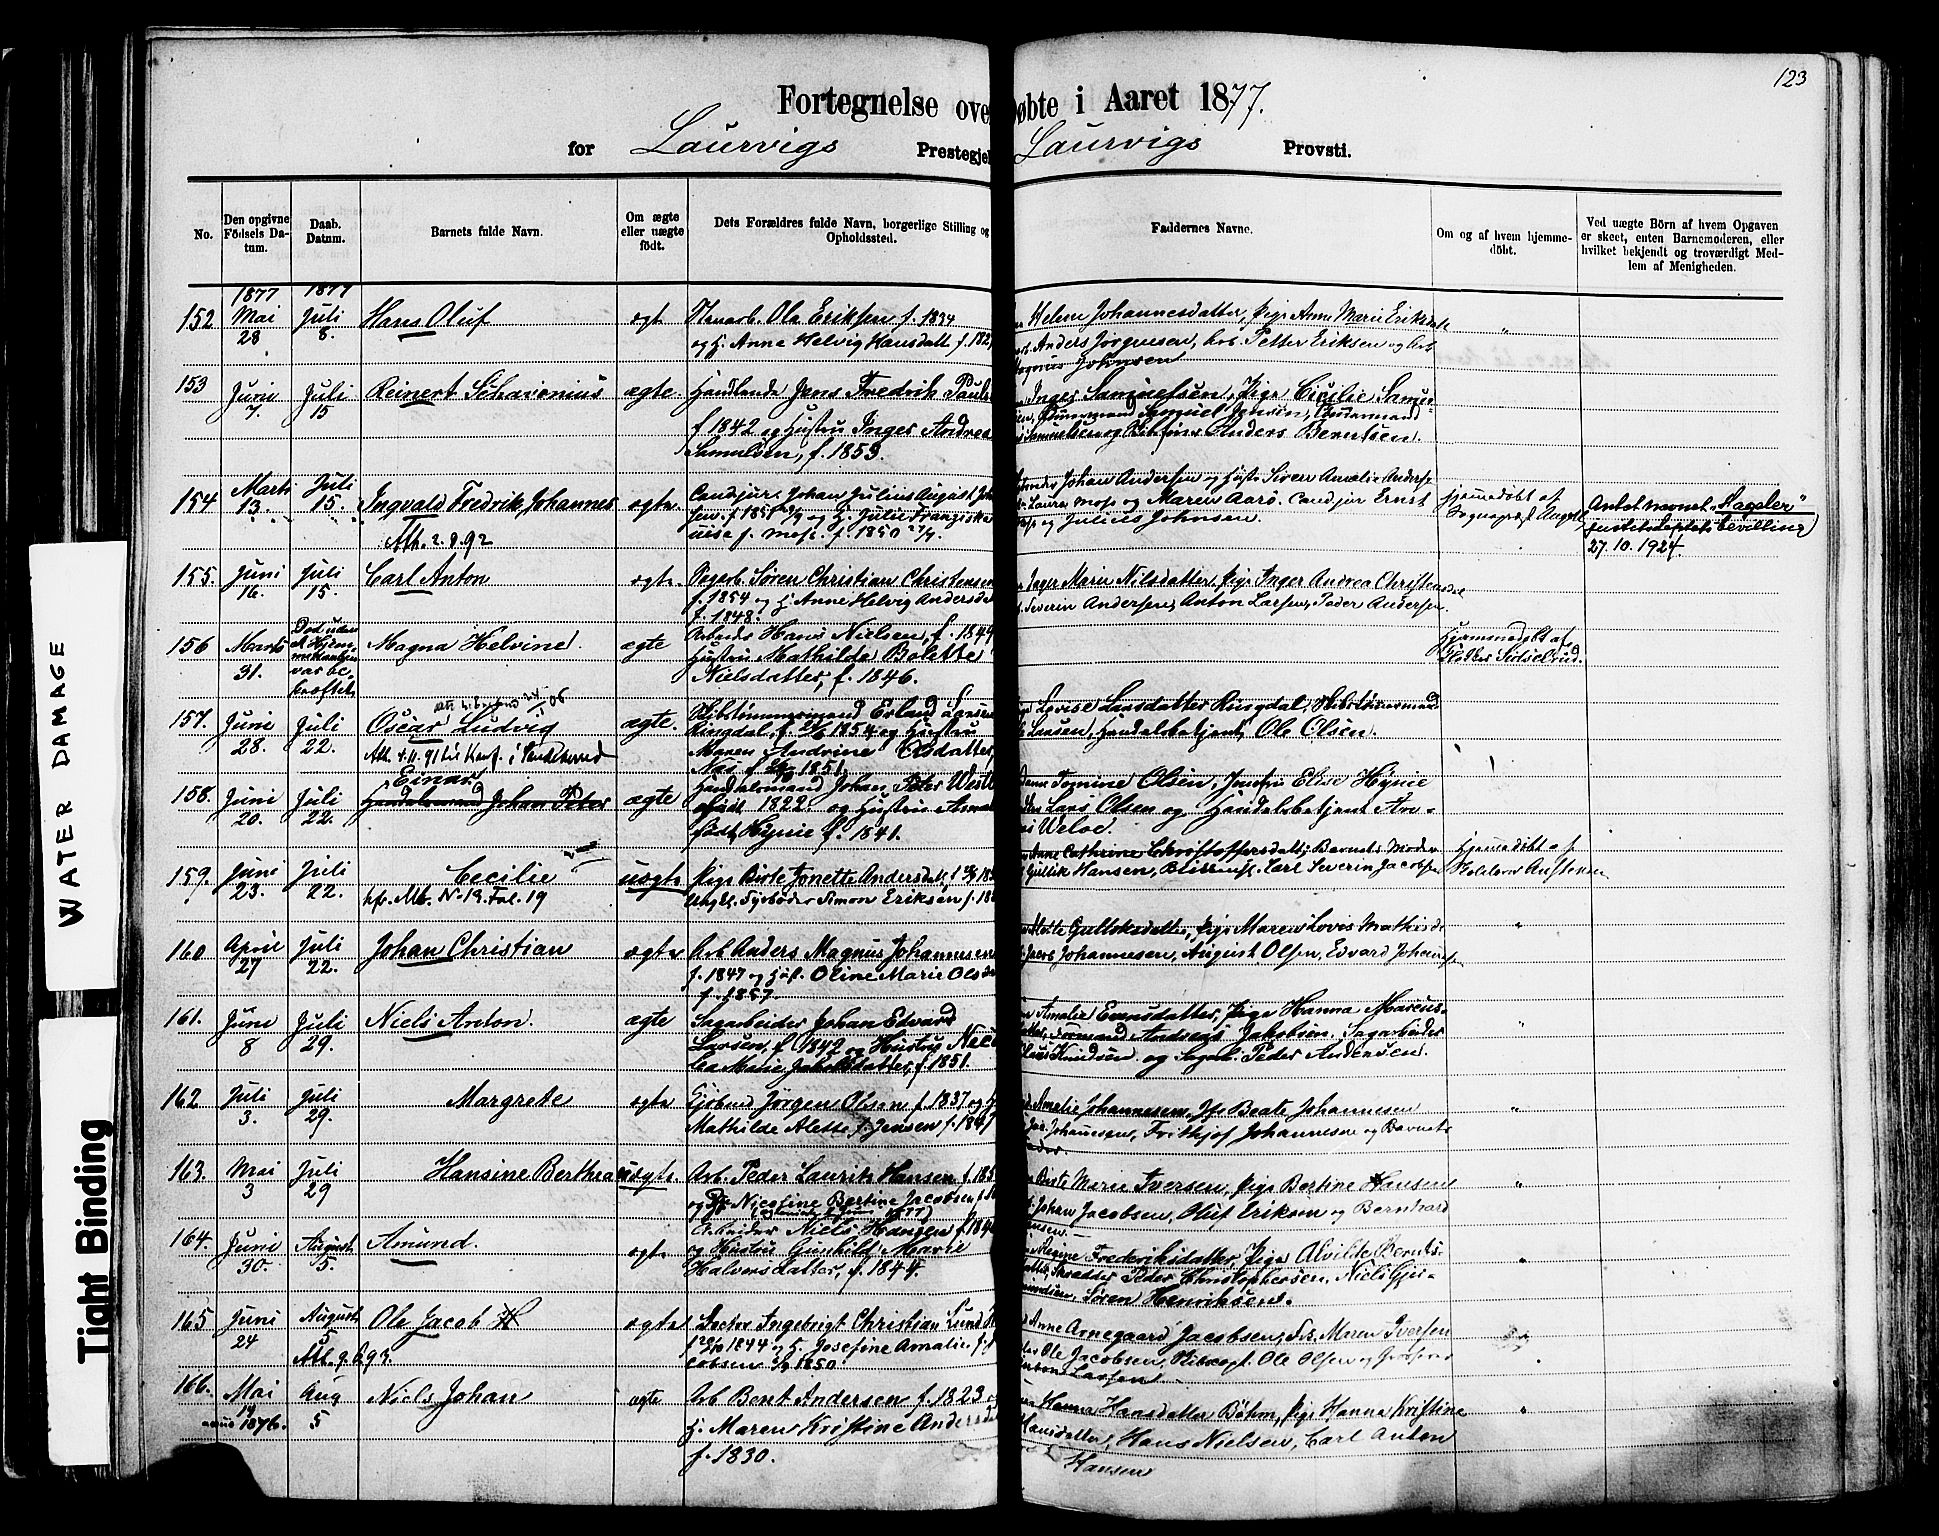 123
Fortegnelse ove øbte i Aaret 1877.
for Laurvigs Prestegjel Laurvigs Provsti.
No.
Den opgivne Födsels Datum.
Daab. Datum.
Barnets fulde Navn.
Om ægte eller uægte födt.
Dets Forældres fulde Navn, borgerlige Stilling og Opholdssted.
Faddernes Navne.
Om og af hvem hjemmedöbt.
Ved uægte Börn af hvem Opgaven er skeet, enten Barnemoderen, eller hvilket bekjendt og troværdigt Medlem af Menigheden.
1877 1877
152 Mai 28 Juli 8. Hans Oluf ægte Ola Eriksen f. 1834
og H. Anne Helvig Hansdatt f. 182
Helene Johannesdatter, Pige Anne Marie Eriksdt
Anders Jørgensen, Arb. Petter Eriksen og Arb
Magnus Johnsen
153 Juni 7. Juli 15 Reinert Schavenius ægte. Handlende Jens Fredrik Pauls
f 1842 og Hustru Inger Andrea
Samuelsen, f. 1853.
Inger Samuelsen, Pige Cicilie Samuel-
sen, Samuel Jensen,
Samuelsen og Anders Berentsen.
154 Marts 13. Juli 15. Ingvald Fredrik Johannes ægte Cand jur. Johan Julius August Joh
sen. f. 1851 og H. Julie Franziska
f. Mose. f. 1850
Att. 2.8.92
Johan Andersen og Andersen
Laura Mose og Maren Aarø. Cand. jur Ernst
og Julius Johnsen.
Hjemmedøbt af
Sogneprest
Antat navnet „Hagler"
(Justitsdeptets bevilling)
27.10.1924.
155. Juni 16. Juli 15. Carl Anton ægte Søren Christian Christensen
f. 1854 og H. Anne Helvig Andersdt
f. 1848.
Inger Marie Nilsdatter, Pige Inger Andrea Christensdt
Severin Andersen, Anton Larsen, Peder Andersen.
156 Marts 31. Død uden
at Hjem-
medaaben
var be-
kræftet Magna Helvine. ægte Arbeids Hans Nielsen, f. 1849
Hustru Mathilde Bolette
Nielsdatter, f. 1846.
Hjemmedøbt af
157. Juni 28. Juli 22. Oscar Ludvig ægte. Skibstømmermand Erland Larsen
Ringdal, f. 1854 og Hustru
Maren Andrine Olsdatter
Næs f. 1851.
Att. 4.11.91 til Konf. i Sandeherred
Lovise Larsdatter Ringdal, Skibstømmermand
Larsen, Handelsbetjent Ole Olsen.
158. Juni 20. Juli 22. Einar
Handelsmand Johan Peter ægte Handelsmand Johan Peter Westb
født 1822. og Hustru Ama
født Hynie f. 1841.
Tomine Olsen, Jomfru Elise Hynie
Lars Olsen og Handelsbetjent An-
Weloe.
159. Juni 23. Juli 22. Cecilie uægte Pige Birte Jonette Andersdatt. f.
Ungkl. Fyrbøder Simon Eriksen f. 18
No 19. Fol. 19
Anne Cathrine Christoffersdatt; Barnets Moder
Gullik Hansen, Carl Severin Jacobsen
Hjemmedøbt af
160 April 27 Juli 22. Johan Christian ægte Arb Anders Magnus Johannesen
f. 1847 og Hust. Oline Marie Olsd
f. 1857.
Mette Gulliksdatter, Pige Maren Lovise Mathisd
Jacob Johannesen, August Olsen, Edvard Johannesen
161. Juni 8 Juli 29. Niels Anton. ægte Sagarbeider Johan Edvard
Larsen, f. 1842 og Hustru Nico
lea Marie Jakobsdatter, f. 1851.
Amalie Evensdatter, Pige Hanna Marcus-
datter, Formand Andreas Jakobsen, Sagarbeider
Claus Knudsen og Sagarb. Peder Andersen.
162 Juli 3. Juli 29. Margrete ægte Sjømd Jørgen Olsen f. 1837 og H
Mathilde Alette f. Jensen f. 18
Amalie Johannesen, Jfr Beate Johannesen
Johannesen, Frithjof Johannesen og Barnets
163. Mai 3 Juli 29 Hansine Berthea uægte Arb. Peder Laurits Hansen f. 185
og Nicoline Bertine Jacobsen f.
Birte Marie Iversen, Pige Bertine Hansen
Johan Jacobsen, Oluf Eriksen og Bernhard
164. Juni 30. August 5. Amund. ægte Arbeider Niels Hansen f. 184
og Hustru Gunhild Marie
Halvorsdatter, f. 1844.
Regine Frederiksdatter, Pige Alvilde Bernts-
datter, Skrædder Peder Christophersen, Niels Gje-
mundsen, Søren Henriksen.
165 Juni 24 August 5 Ole Jacob ægte Ingebrigt Christian Lund
1844 og H. Josefine Amalie f. J
cobsen 1850.
Att. 9.6.93.
Anne Arnegaard Jacobsen, Maren Iversen
Ole Jacobsen, Skibscapt. Ole Olsen og
Larsen.
166. Mai 14 1876. Aug 5 Niels Johan ægte Arb Bent Andersen f. 1823
H. Maren Kristine Andersd
f. 1830.
Hanna Hansdatter Bøhm, Pige Hanna Kristine
Hansdatter, Hans Nielsen, Carl Anton
Hansen
WATER DAMAGE
Tight Binding